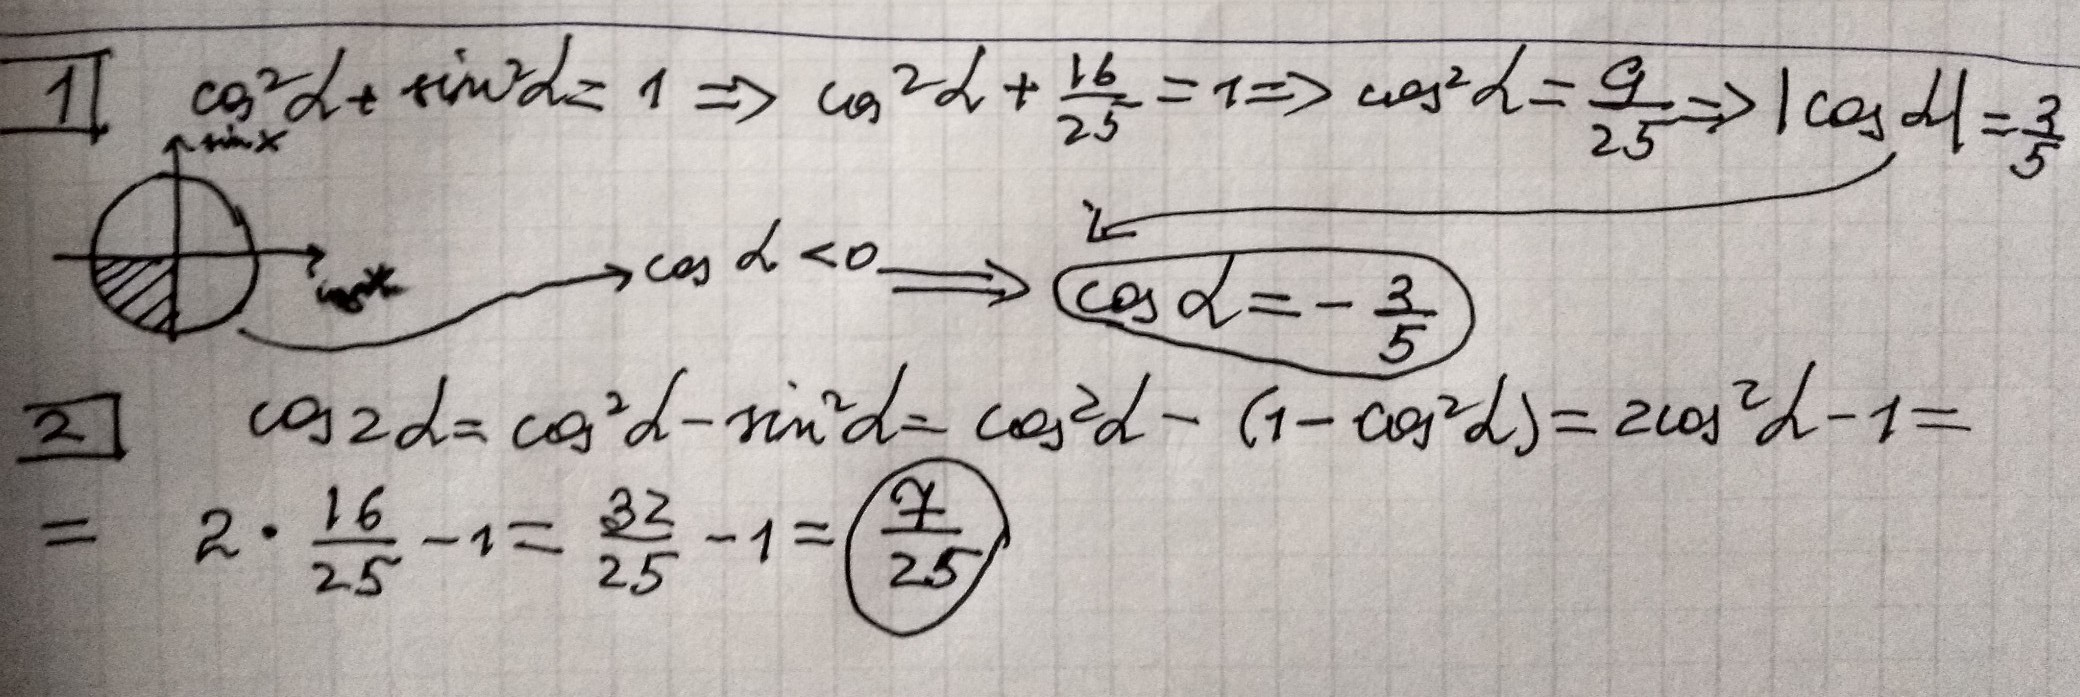 1 cos²α + sin²α = 1 => cos²α + 16/25 = 1 => cos²α = 9/25 => |cos α| = 3/5
sin x
cos α < 0 => cos α = - 3/5
2 cos2α = cos²α - sin²α = cos²α - (1 - cos²α) = 2cos²α - 1 =
= 2 · 16/25 - 1 = 32/25 - 1 = 7/25